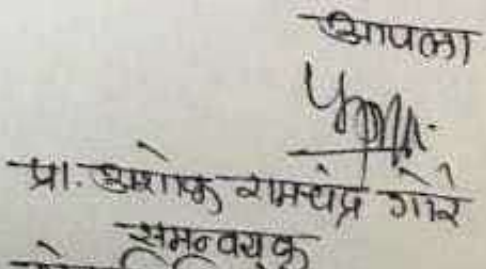 आपला
प्रा. अशोक रामचंद्र गोरे
समन्वयक